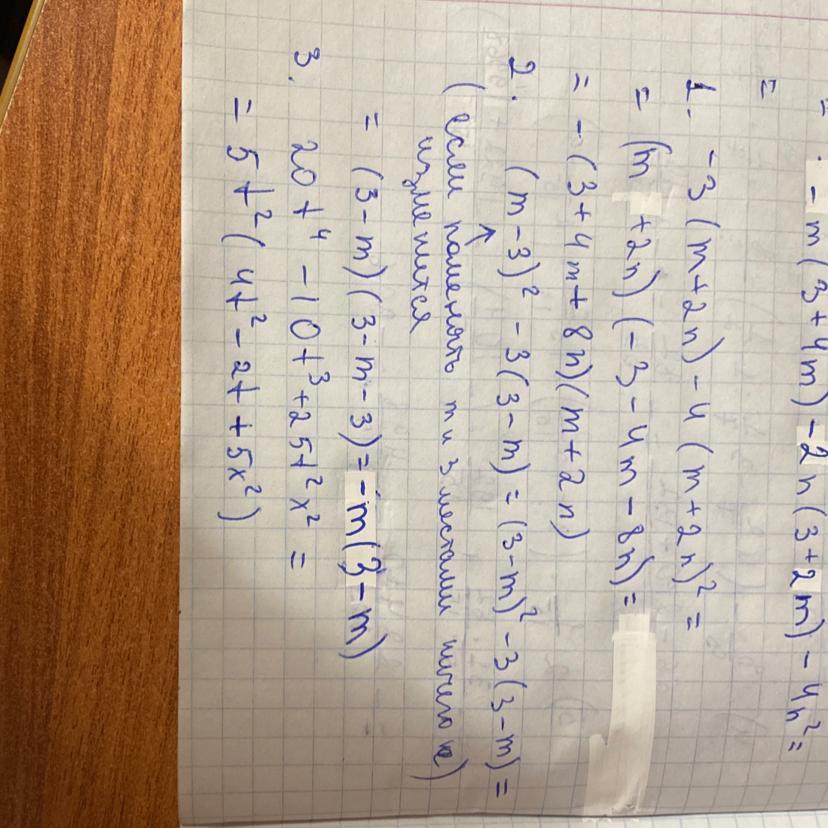 = - m(3+4m) - 2n(3+2m) - 4n² =
=
1. -3(m+2n) - 4(m+2n)² =
= (m+2n)(-3-4m-8n) =
= -(3+4m+8n)(m+2n)
2. (m-3)² - 3(3-m) = (3-m)² - 3(3-m) =
(если поменять m и 3 местами ничего не
изменится)
= (3-m)(3-m-3) = -m(3-m)
3. 20t⁴ - 10t³ + 25t²x² =
= 5t²(4t² - 2t + 5x²)